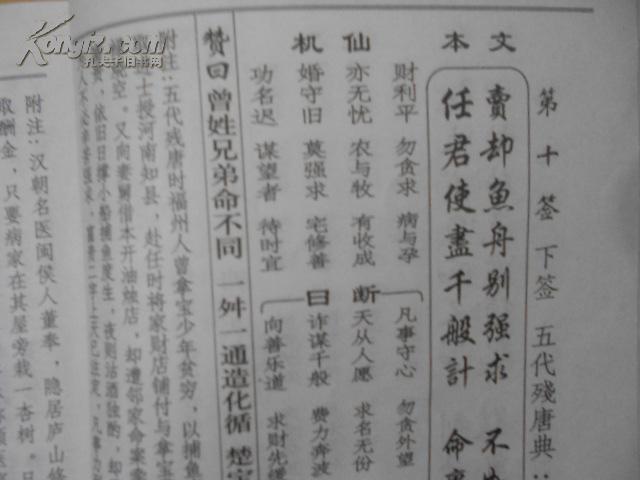 第十签 下签 五代残唐典
文本
賣却魚舟别强求 不
任君使盡千般計 命
仙机
财利平 勿贪求 病与孕
亦无忧 农与牧 有收成
婚守旧 莫强求 宅修善
功名迟 谋望者 待时宜
断曰
凡事守心 勿贪外望
天从人愿 求名无份
诈谋千般 费力奔波
向善乐道 求财先缓
赞曰 曾姓兄弟命不同 一舛一通造化循 楚宝
附注：五代残唐时福州人曾拿宝少年贫穷，以捕鱼
进士授河南知县，赴任时将家财店铺付与拿宝
空。又向妻舅借本开油烛店，却遭邻家命案牵
依旧日撑小船捕鱼度生，夜则沽酒独酌，却
附注：汉朝名医闽侯人董奉，隐居庐山修
取酬金，只要病家在其屋旁栽一杏树。
Kongfz.com
孔夫子旧书网